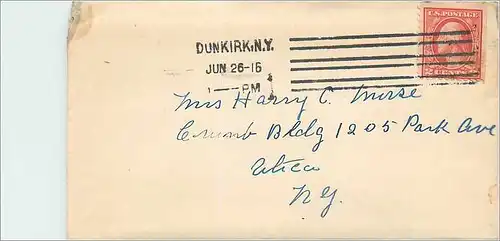 DUNKIRK, N.Y.
JUN 26-16
1 — PM
U.S. POSTAGE
2 CENTS 2
Mrs Harry C. Morse
Bldg 1205 Park Ave
Utica
N.Y.